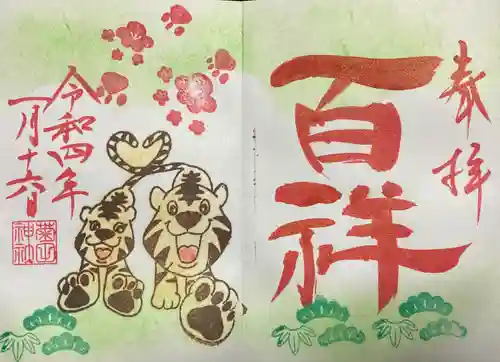 奉拝
百祥
令和四年
一月十六日
神社